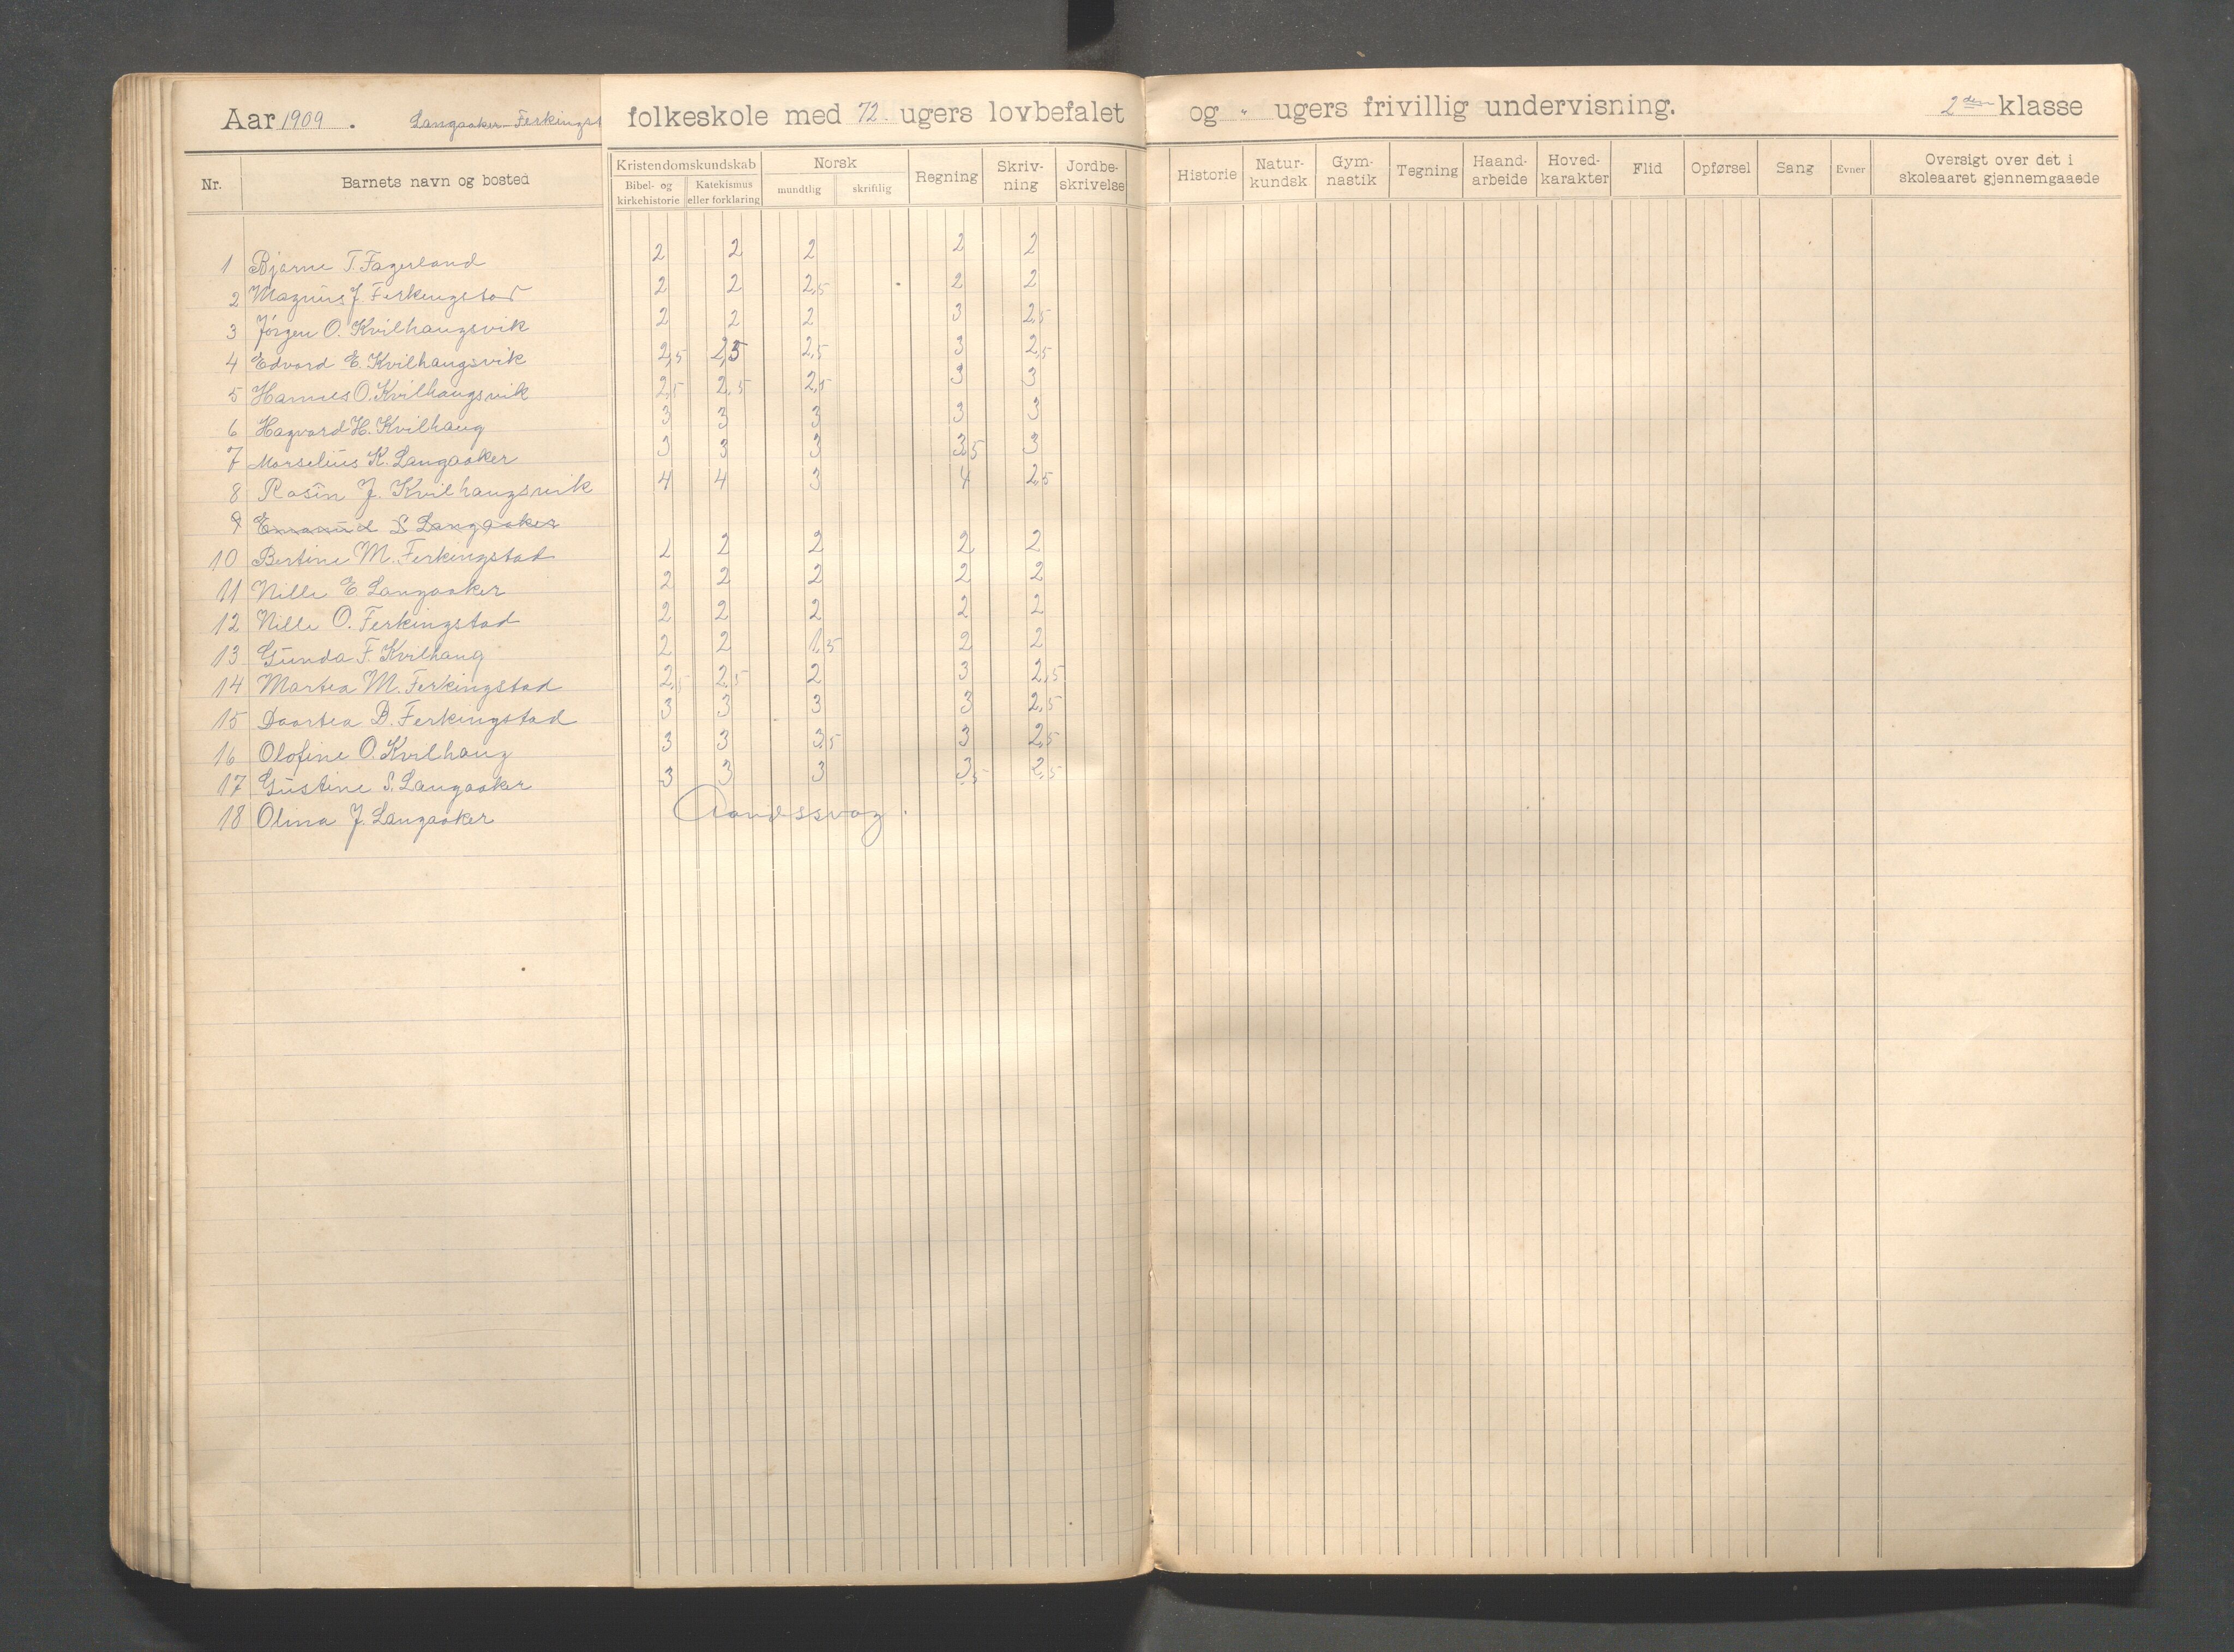 Aar 1909. Langaaker-Ferkingst folkeskole med 72 ugers lovbefalet og " ugers frivillig undervisning. 2den klasse
Nr. Barnets navn og bosted Kristendomskundskab Norsk Regning Skriv-ning Jordbe-skrivelse Historie Natur-kundsk Gym-nastik Tegning Haand-arbeide Hoved-karakter Flid Opførsel Sang Evner Oversigt over det i skoleaaret gjennemgaaede
Bibel- og kirkehistorie Katekismus eller forklaring mundtlig skriftlig
1 Bjarne T. Fagerland 2 2 2 2 2
2 Magnus J. Ferkingstad 2 2 2,5 2 2
3 Jørgen O. Kvilhaugsvik 2 2 2 3 2,5
4 Edvard E. Kvilhaugsvik 2,5 2,5 2,5 3 2,5
5 Hannes O. Kvilhaugsvik 2,5 2,5 2,5 3 3
6 Hagvard H. Kvilhaug 3 3 3 3 3
7 Marselius K. Langaaker 3 3 3 3,5 3
8 Rasin J. Kvilhaugsvik 4 4 3 4 2,5
9 Emanuel S Langaaker
10 Bertine M. Ferkingstad 2 2 2 2 2
11 Nille E. Langaaker 2 2 2 2 2
12 Nille O. Ferkingstad 2 2 2 2 2
13 Gunda F. Kvilhaug 2 2 1,5 2 2
14 Martea M. Ferkingstad 2,5 2,5 2 3 2,5
15 Daartea B. Ferkingstad 3 3 3 3 2,5
16 Olofine O. Kvilhaug 3 3 3,5 3 2,5
17 Gustine S. Langaaker 3 3 3 3,5 2,5
18 Olina J. Langaaker Aandssvag.